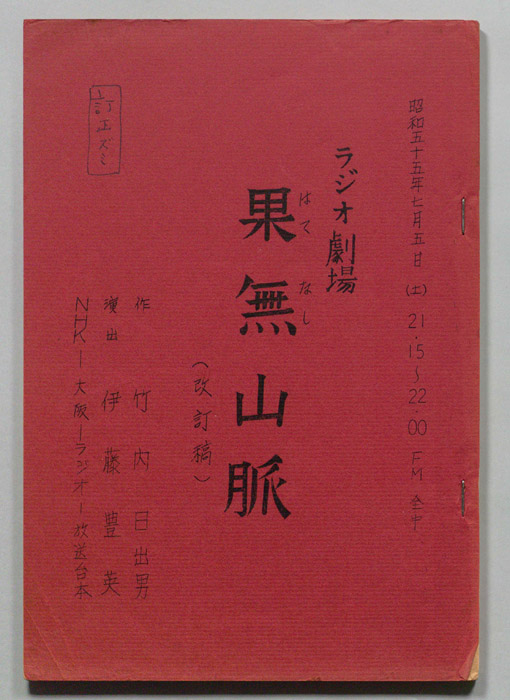 昭和五十五年七月五日(土)21.15~22.00 FM全中
ラジオ劇場
はてなし
果無山脈
(改訂稿)
作 竹内日出男
演出 伊藤豊英
NHK-大阪-ラジオ-放送台本
訂正ズミ